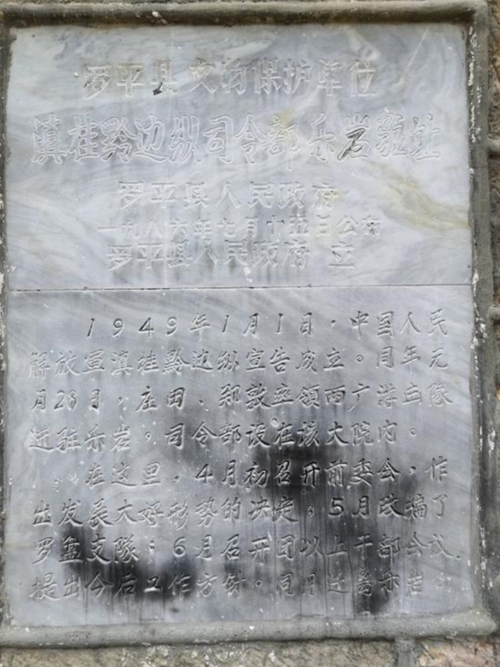 罗平县文物保护单位
滇桂黔边纵司令部乐岩旧址
罗平县人民政府
一九八六年七月十五日公布
罗平县人民政府 立
1949年1月1日，中国人民
解放军滇桂黔边纵宣告成立。同年元
月28日，庄田、郑敦率领两广游击队
进驻乐岩，司令部设在该大院内。
在这里，4月初召开前委会，作
出发展大好形势的决定，5月改编了
罗盘支队；6月召开团以上干部会议
提出今后工作方针。同月